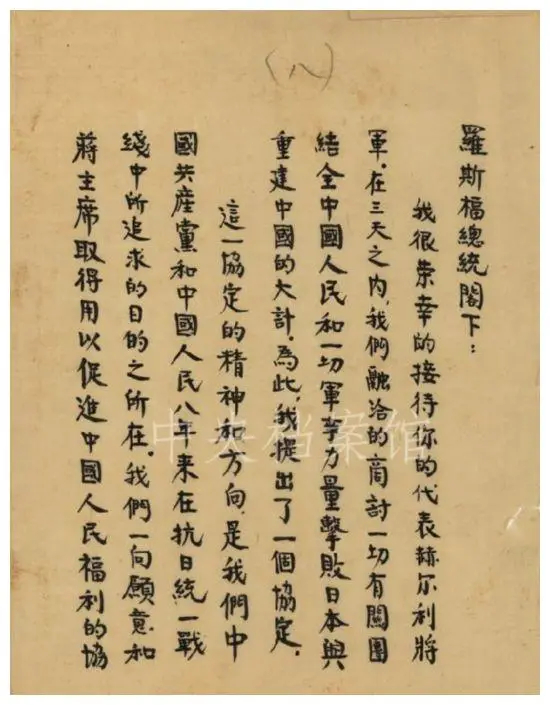 (八)
羅斯福總統閣下：
我很荣幸的接待你的代表赫尔利將
軍．在三天之内，我們融洽的商討一切有關團
結全中國人民和一切軍事力量擊敗日本與
重建中國的大計．為此，我提出了一個協定．
這一協定的精神和方向，是我們中
國共産黨和中國人民八年来在抗日統一戰
綫中所追求的目的之所在．我們一向願意和
蔣主席取得用以促進中國人民福利的協
中央档案馆